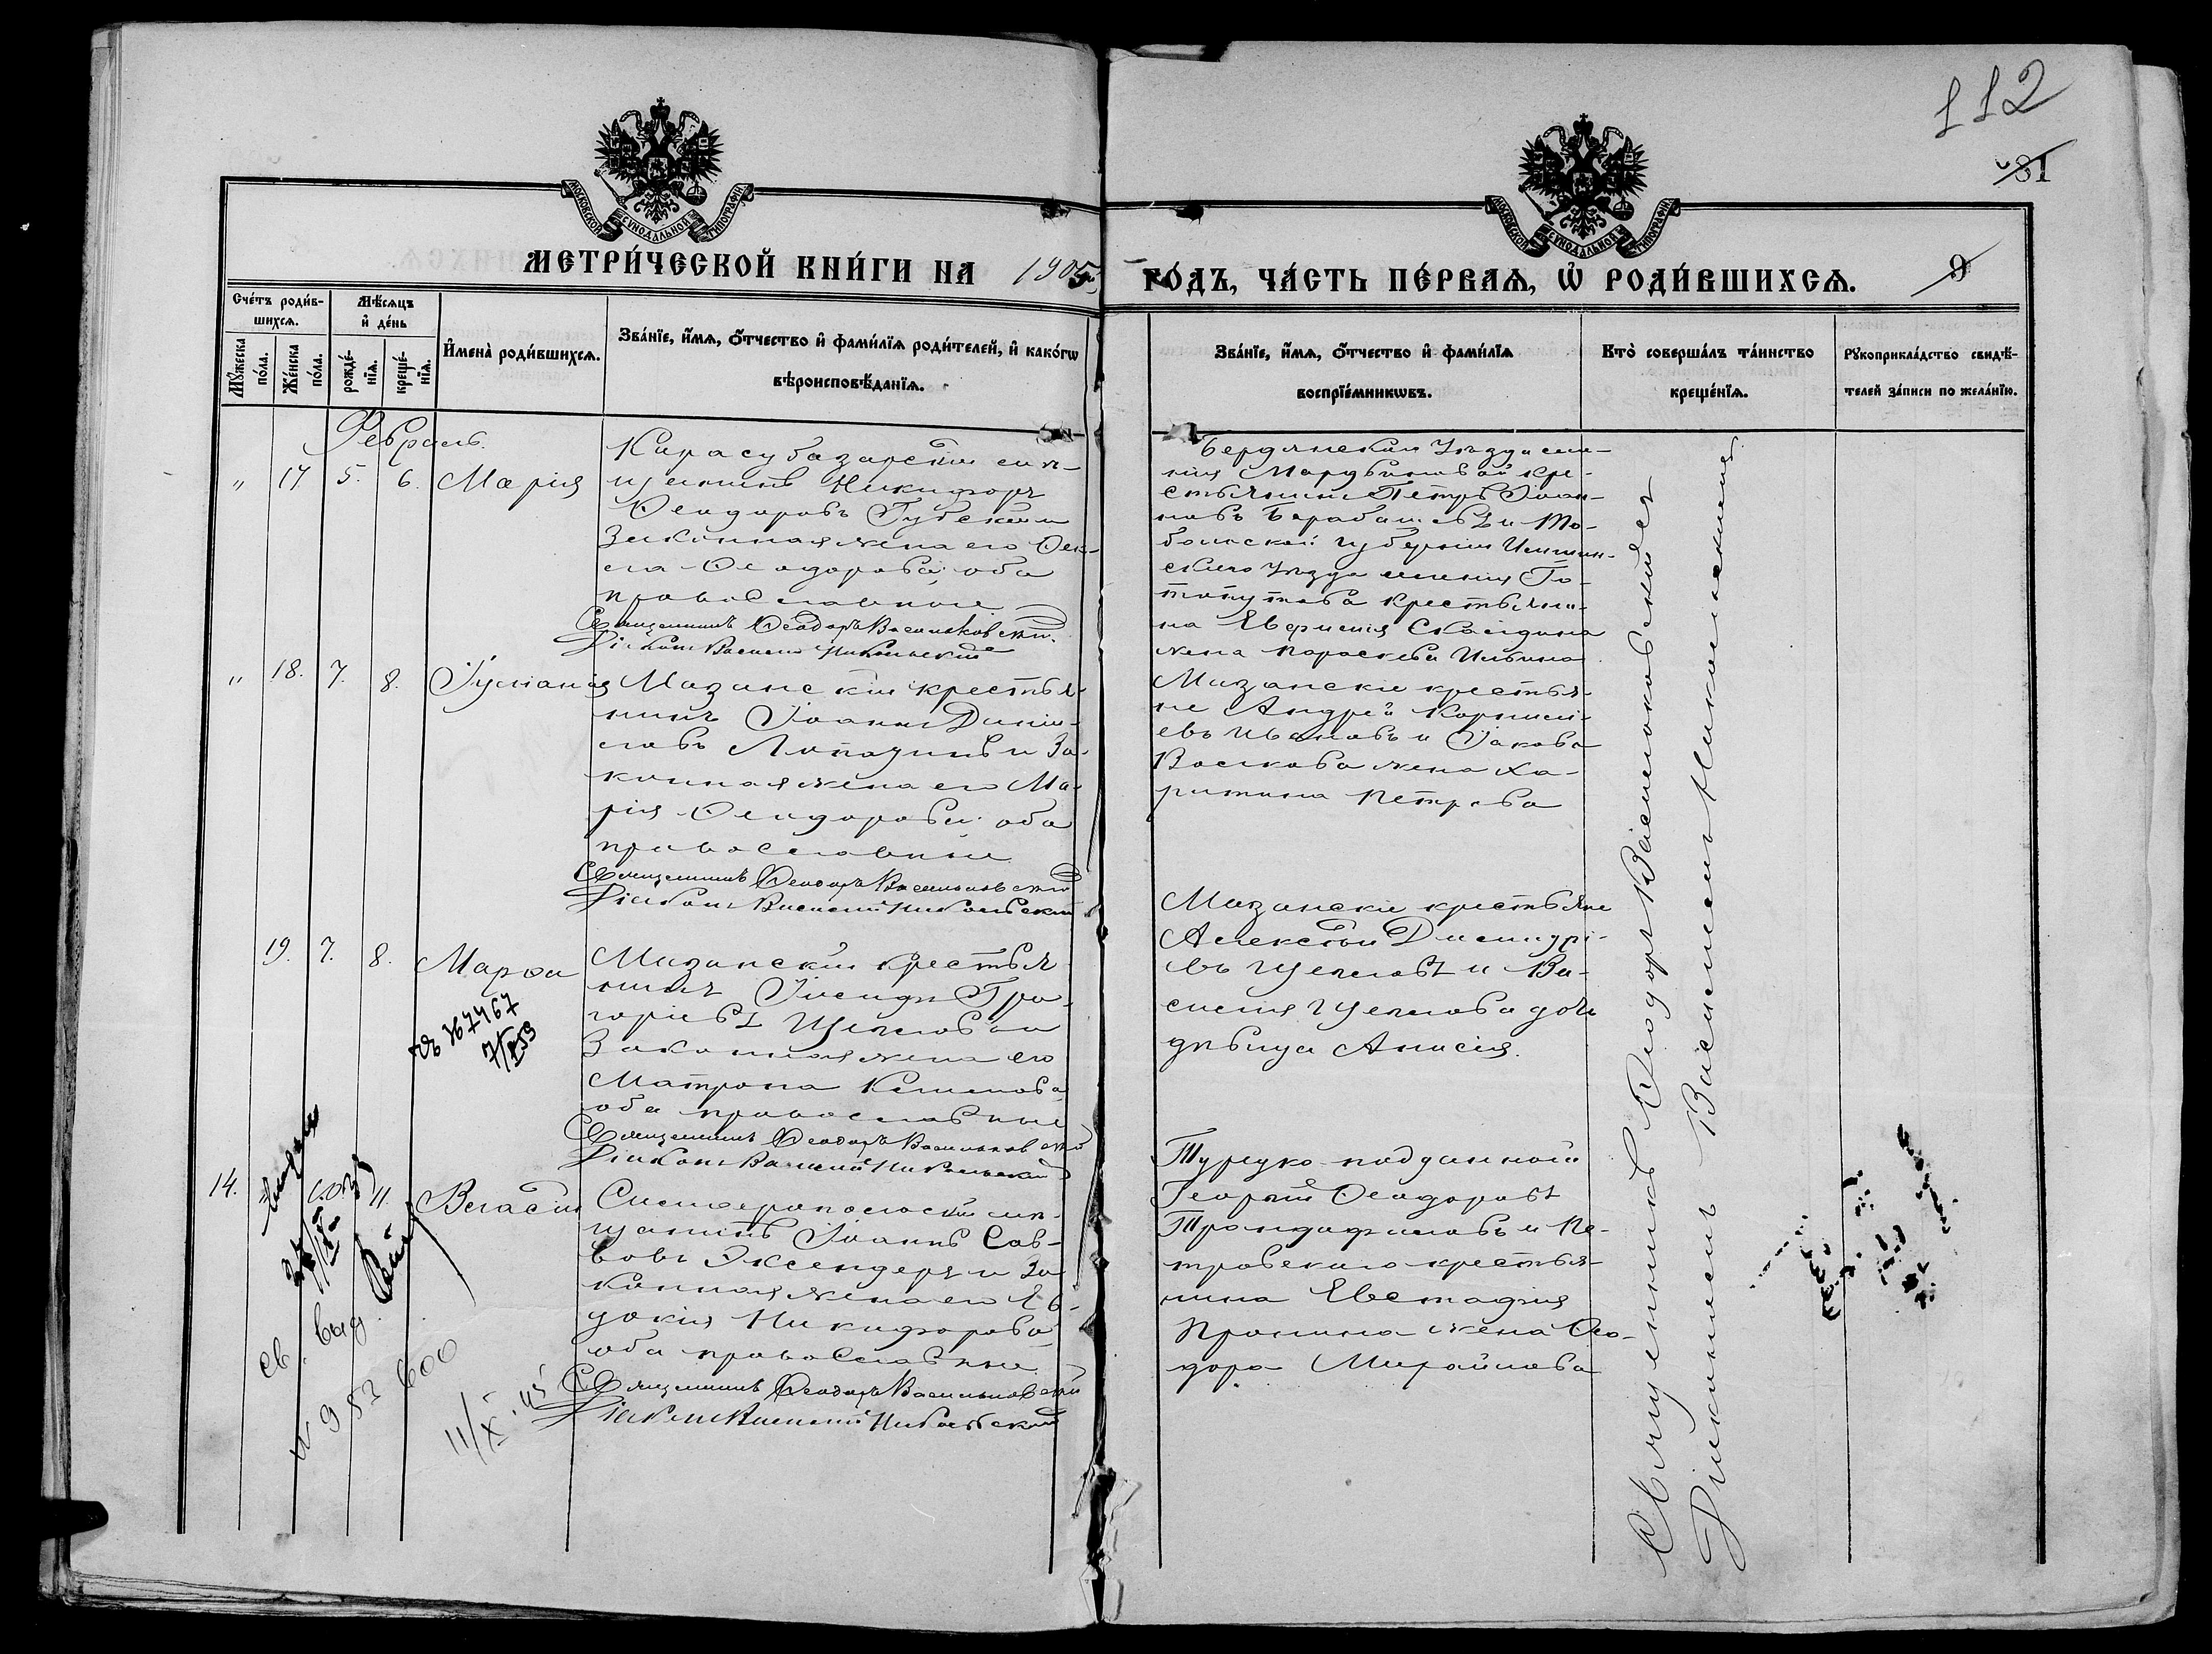 112
81
МОСКОВСКОЙ СѴНОДАЛЬНОЙ ТИПОГРАФІИ
МОСКОВСКОЙ СѴНОДАЛЬНОЙ ТИПОГРАФІИ
МЕТРИ́ЧЕСКОЙ КНИ́ГИ НА 1905
ГО́ДЪ, ЧА́СТЬ ПЕ́РВАѦ, Ѡ҆ РОДИ́ВШИХСѦ. 9
Сче́тъ роди́в-
шихсѧ.
Мꙋ́жеска по́ла.
Же́нска по́ла.
Мѣ́сѧцъ
и҆ де́нь
рожде́-
нїѧ.
креще́-
нїѧ.
И҆мена̀ роди́вшихсѧ.
Зва́нїе, и҆́мѧ, ѻ҆́тчество и҆ фами́лїѧ роди́телей, и҆ како́гѡ
вѣроисповѣ́данїѧ.
Зва́нїе, и҆́мѧ, ѻ҆́тчество и҆ фами́лїѧ
воспрїе́мникѡвъ.
Кто̀ соверша́лъ та́инство
креще́нїѧ.
Рꙋкоприкла́дство свидѣ́-
телей за́писи по жела́нїю.
Февраль.
" 17 5. 6. Марія
Карасубазарскій мѣ-
щанинъ Никифоръ
Ѳеодоровъ Губскій и
законная жена его Ѳек-
ла Ѳеодорова, оба
православные
Священникъ Ѳеодоръ Васильковскій
Діаконъ Василій Никольскій
Бердянскаго Уѣзда селе-
нія
крестьянинъ Петръ Іоан-
новъ Барабашевъ и То-
больской губерніи Ишим-
скаго уѣзда селенія Го-
топутова крестьяни-
на Евфимія
жена Параскева Ильина
" 18. 7. 8. Іуліанія
Мазанскій крестья-
нинъ Іоаннъ Дани-
ловъ Лопатинъ и за-
конная жена его Ма-
рія Ѳеодорова оба
православные
Священникъ Ѳеодоръ Васильковскій
Діаконъ Василій Никольскій
Мазанскіе крестья-
не Андрей Корнили-
евъ Ивановъ и Іакова
Волкова жена Ха-
ритина Петрова
19. 7. 8. Марѳа
Мазанскій крестья-
нинъ Іосифъ Гри-
горьевъ Щегловъ и
законная жена его
Матрона
оба православные
Священникъ Ѳеодоръ Васильковскій
Діаконъ Василій Никольскій
Мазанскіе крестьяне
Алексѣй Димитрі-
евъ Щегловъ и Ва-
силія Щеглова дочь
дѣвица Анисія.
767467
14. 11. Власій
Симферопольскій мѣ-
щанинъ Іоаннъ Сав-
вовъ Эксендеръ и за-
конная жена его Ев-
докія Никифорова
оба православные
Священникъ Ѳеодоръ Васильковскій
Діаконъ Василій Никольскій
Турецко-подданной
Георгій Ѳеодоровъ
Трандафиловъ и Пе-
тровскаго крестья-
нина Евстафія
Пронина жена Ѳео-
дора Михайлова
Св. выд.
11/X.45
Священникъ Ѳеодоръ Васильковскій съ
Діакономъ Василіемъ Никольскимъ